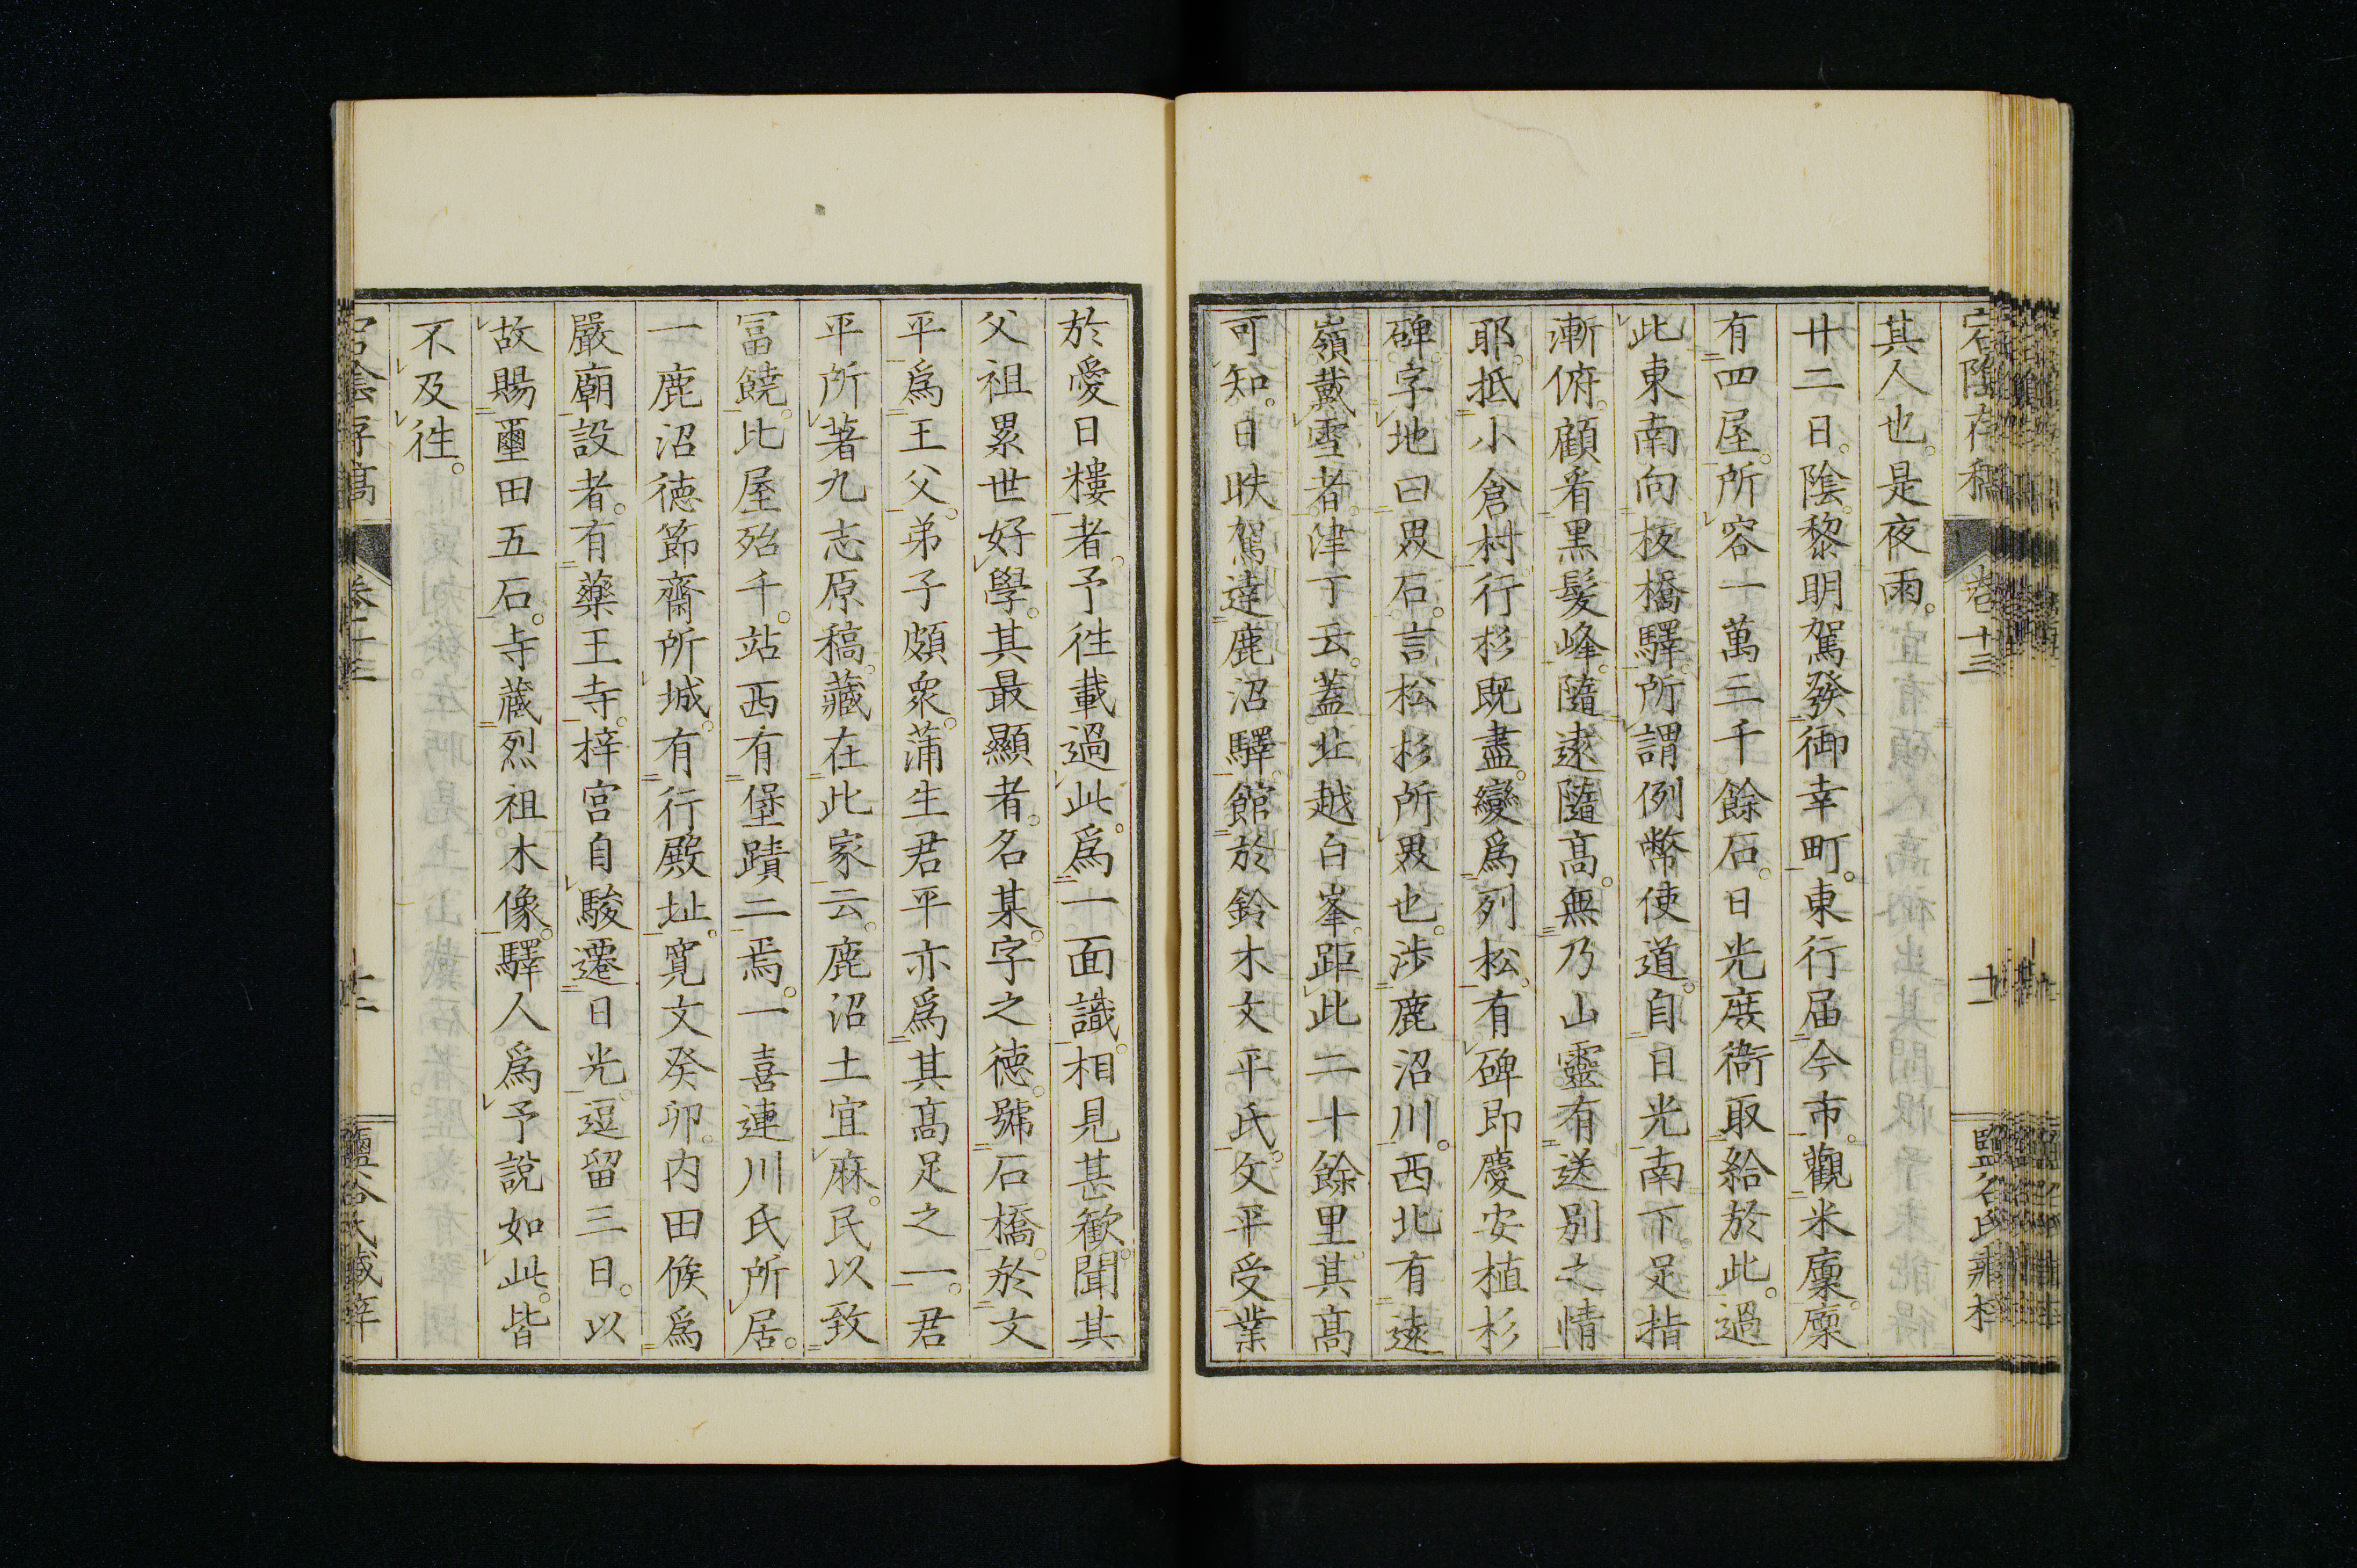 其人也。是夜雨。
廿二日。陰。黎明駕發御幸町。東行屆今市。觀米廩。廩
有四屋。所容一萬三千餘石。日光廢衙取給於此。過
此東南向板橋驛。所謂例幣使道。自日光南下。足指
漸俯。顧看黑髮峰。隨遠隨髙。無乃山靈有送別之情
耶。抵小倉村。行杉既盡。變爲列松。有碑即慶安植杉
碑。字地曰畏石。言松杉所畏也。涉鹿沼川。西北有遠
嶺戴雪者。津丁云。蓋北越白峯。距此二十餘里。其髙
可知。日昳駕達鹿沼驛。館於鈴木文平氏。文平受業
於愛日樓者。予徃載過此。爲一面識。相見甚歡。聞其
父祖累世好學。其最顯者。名某。字之德。號石橋。於文
平爲王父。弟子頗衆。蒲生君平亦爲其髙足之一。君
平所著九志原稿。藏在此家云。鹿沼土宜麻。民以致
冨饒。比屋殆千。站西有堡蹟二焉。一喜連川氏所居。
一鹿沼徳節齋所城。有行殿址。寬文癸卯。内田候爲
嚴廟設者。有藥王寺。梓宮自駿遷日光。逗留三日。以
故賜璽田五石。寺藏烈祖木像。驛人爲予說如此。皆
不及徃。
宕陰存稿
卷十三
十二
鹽谷氏藏梓